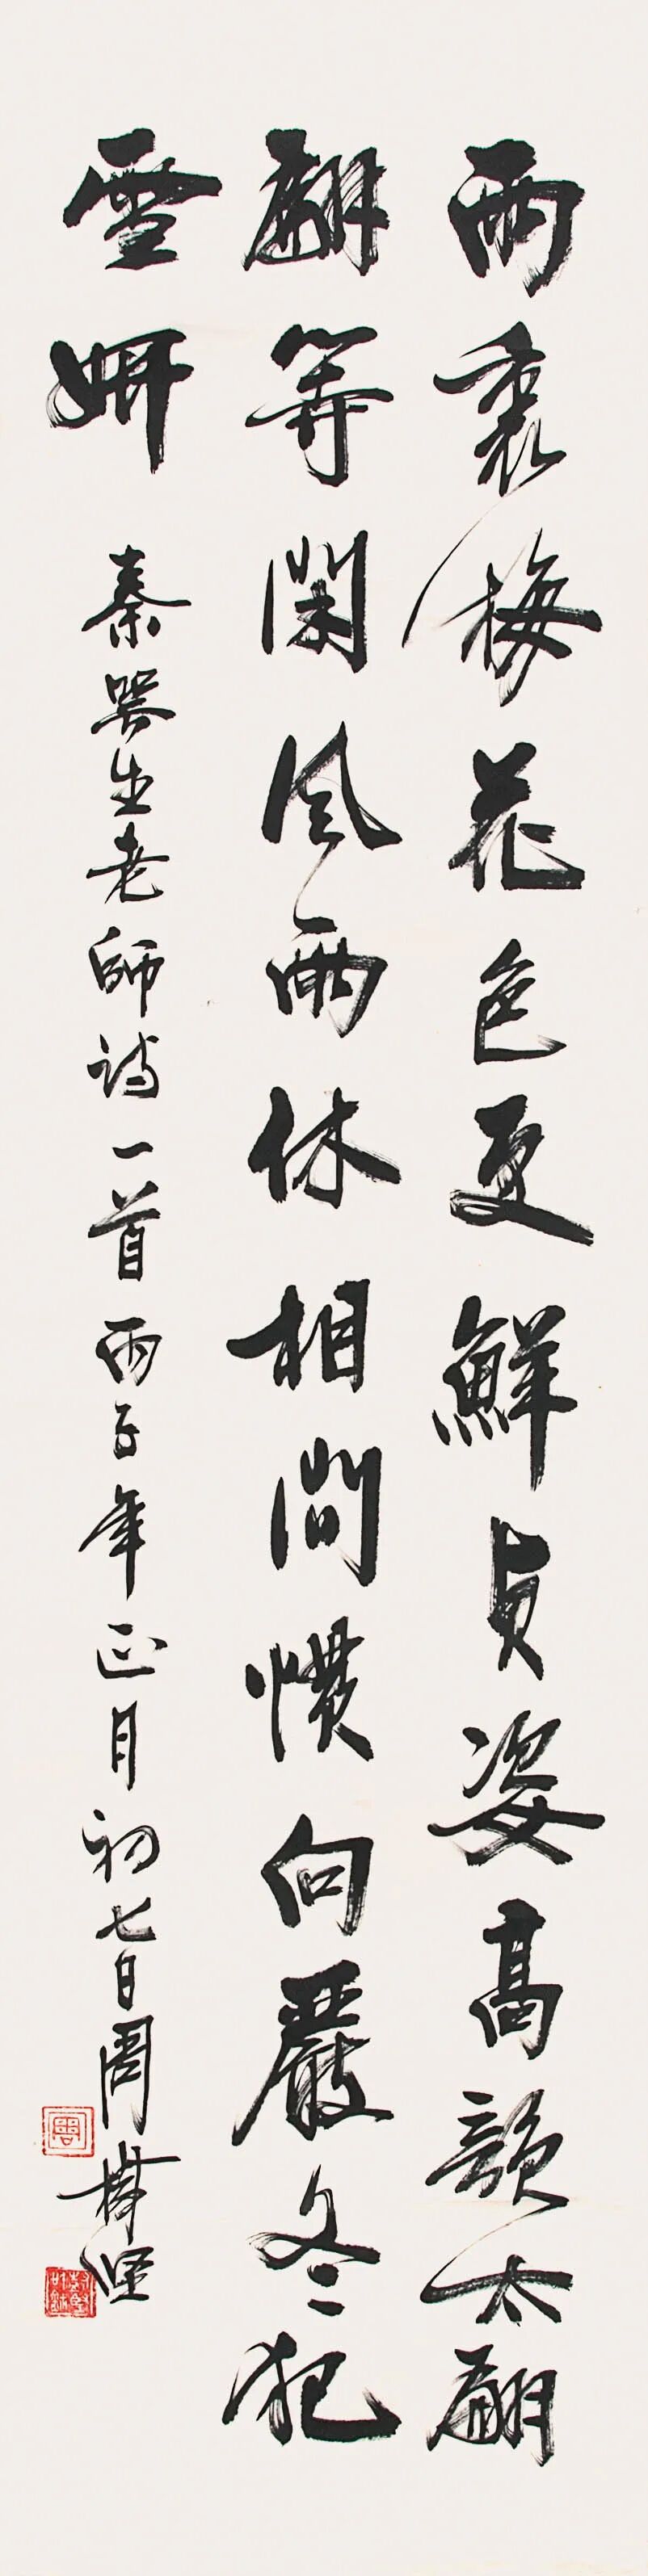 雨裏梅花色更鮮貞姿高韻太翩
翩等閑風雨休相問慣向嚴冬犯
雪妍
秦咢生老師詩一首丙子年正月初七日周樹堅